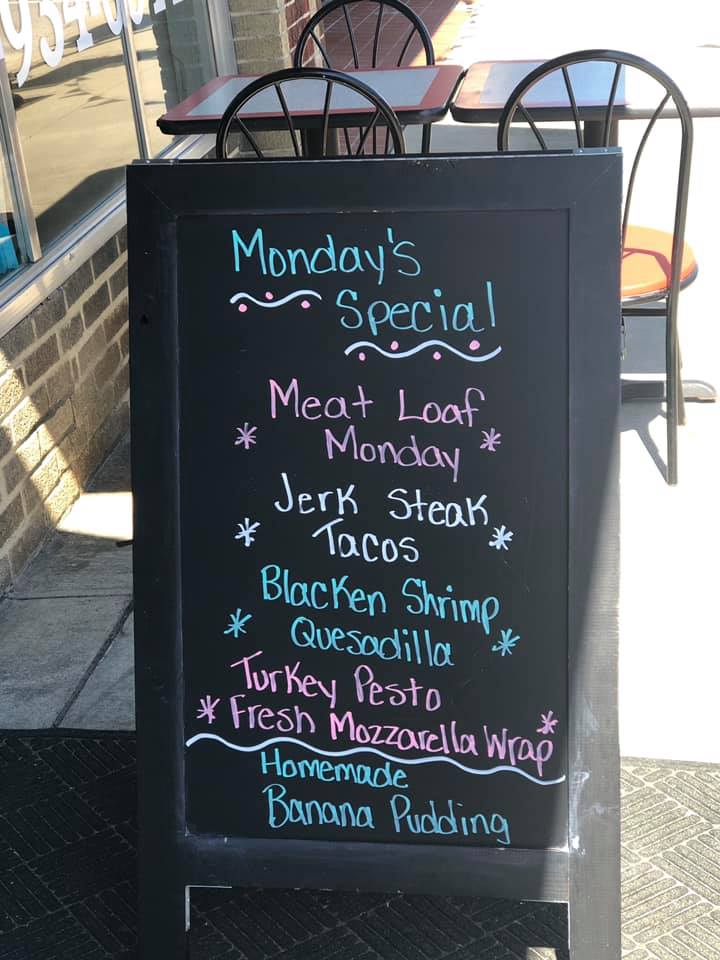 Monday's
Special
Meat Loaf
Monday
Jerk Steak
Tacos
Blacken Shrimp
Quesadilla
Turkey Pesto
Fresh Mozzarella Wrap
Homemade
Banana Pudding